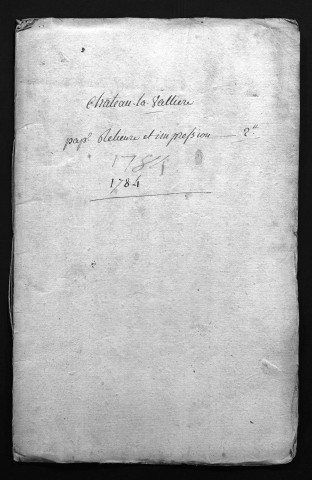 Chateau-la-Valliere
papr. Relieure et impression — 2#
1784
1784